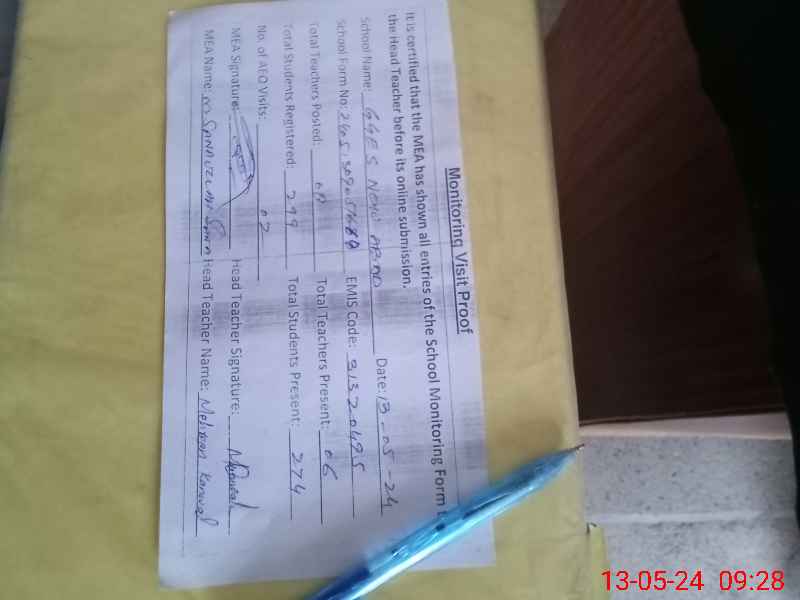 Monitoring Visit Proof
It is certified that the MEA has shown all entries of the School Monitoring Form t
the Head Teacher before its online submission.
School Name: GGES Date: 13-05-24
School Form No: EMIS Code: 31320495
Total Teachers Posted: Total Teachers Present: 06
Total Students Registered: 299 Total Students Present: 274
No. of AEO Visits: 02
MEA Signature: Head Teacher Signature:
MEA Name: Head Teacher Name: Kanwal
13-05-24 09:28